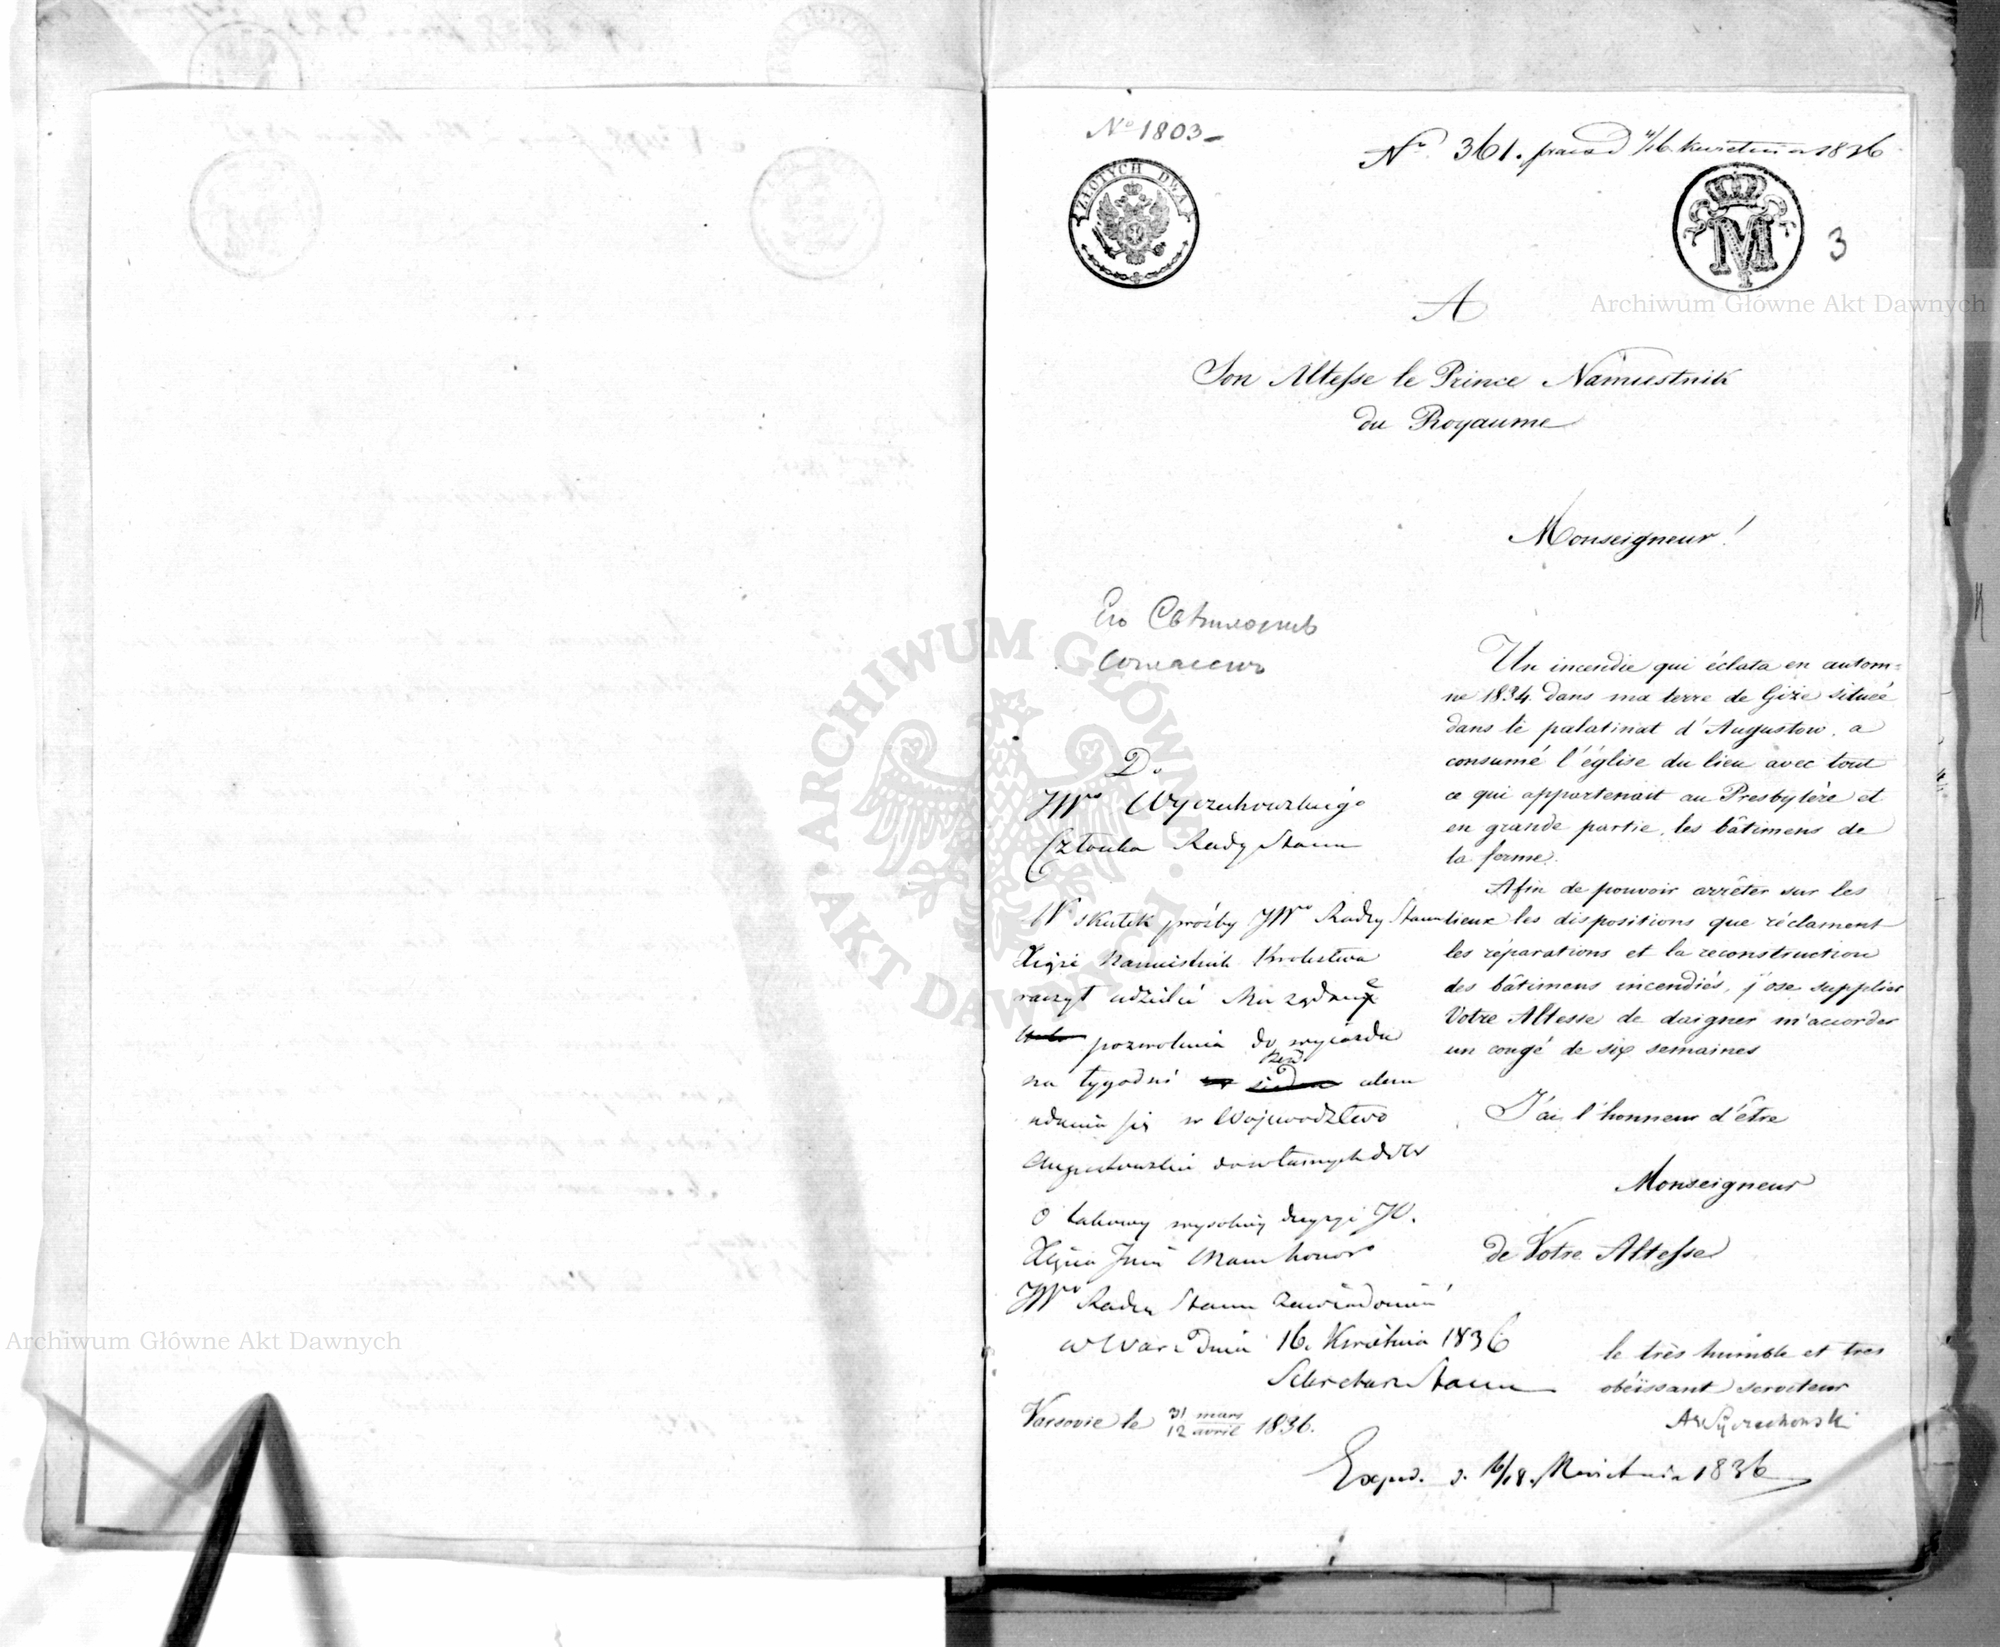 Nº 1803
Nº 361. 4/16 kwietnia 1836
ZŁOTYCH DWA
M
3
A
Son Altesse le Prince Namiestnik
du Royaume
Monseigneur!
Un incendie qui éclata en autom=
ne 1834 dans ma terre de Giże située
dans le palatinat d'Augustow, a
consumé l'église du lieu avec tout
ce qui appartenait au Presbytère et
en grande partie, les bâtimens de
la ferme.
Afin de pouvoir arrêter sur les
lieux les dispositions que réclament
les réparations et la reconstruction
des bâtimens incendiés, j'ose supplier
Votre Altesse de daigner m'accorder
un congé de six semaines
J'ai l'honneur d'être
Monseigneur
de Votre Altesse
le très humble et tres
obéissant serviteur
AWyczechowski
Varsovie le 31 mars / 12 avril 1836.
Его Светлость
согласенъ
Do
JWo Wyczechowskiego
Członka Rady Stanu
W skutek prośby JWo Radzy Stanu
Xiążę Namiestnik Królestwa
raczył udzielić Mu żądane
pozwolenia do wyjazdu
na tygodni sześć celem
udania się w Województwo
Augustowskie do własnych dóbr
O takowey wysokiey decyzyi JO.
Xięcia Jmci Mam honor
JWo Radzcę Stanu zawiadomić
w War. Dnia 16. Kwietnia 1836
Sekretarz Stanu
Exped. d. 6/18. Kwietnia 1836
ARCHIWUM GŁÓWNE AKT DAWNYCH
Archiwum Główne Akt Dawnych
Archiwum Główne Akt Dawnych